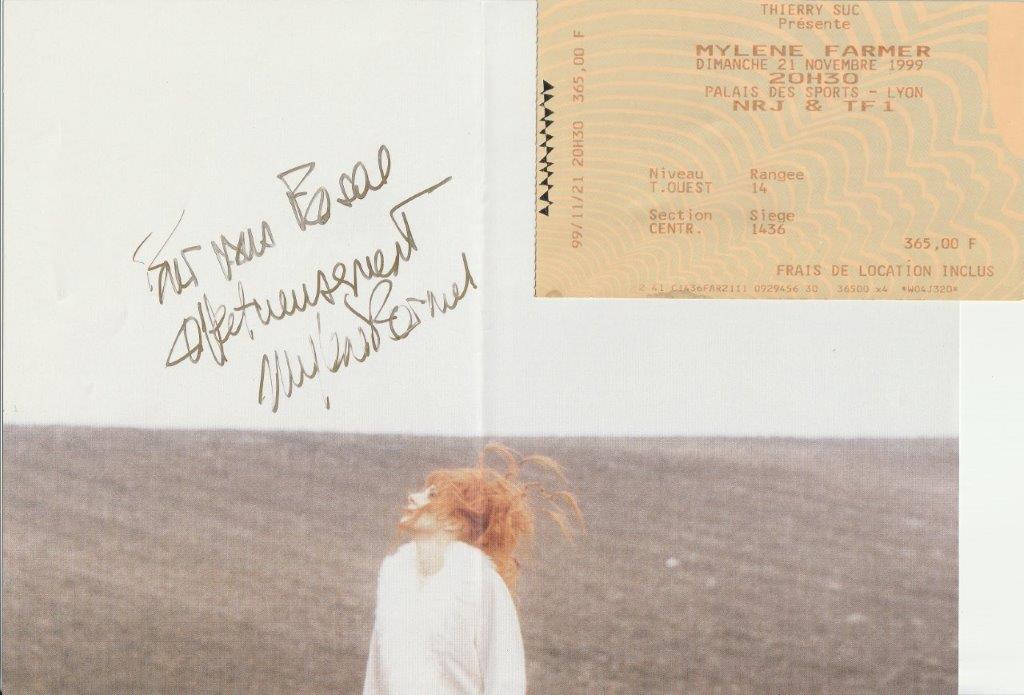 THIERRY SUC
Présente
MYLENE FARMER
DIMANCHE 21 NOVEMBRE 1999
20H30
PALAIS DES SPORTS - LYON
NRJ & TF1
99/11/21 20H30 365,00 F
Niveau Rangee
T.OUEST 14
Section Siege
CENTR. 1436
365,00 F
FRAIS DE LOCATION INCLUS
2 41 C1436FAR2111 0929456 30 36500 x4 *W04J320*
Pour vous
affectueusement
Mylène Farmer